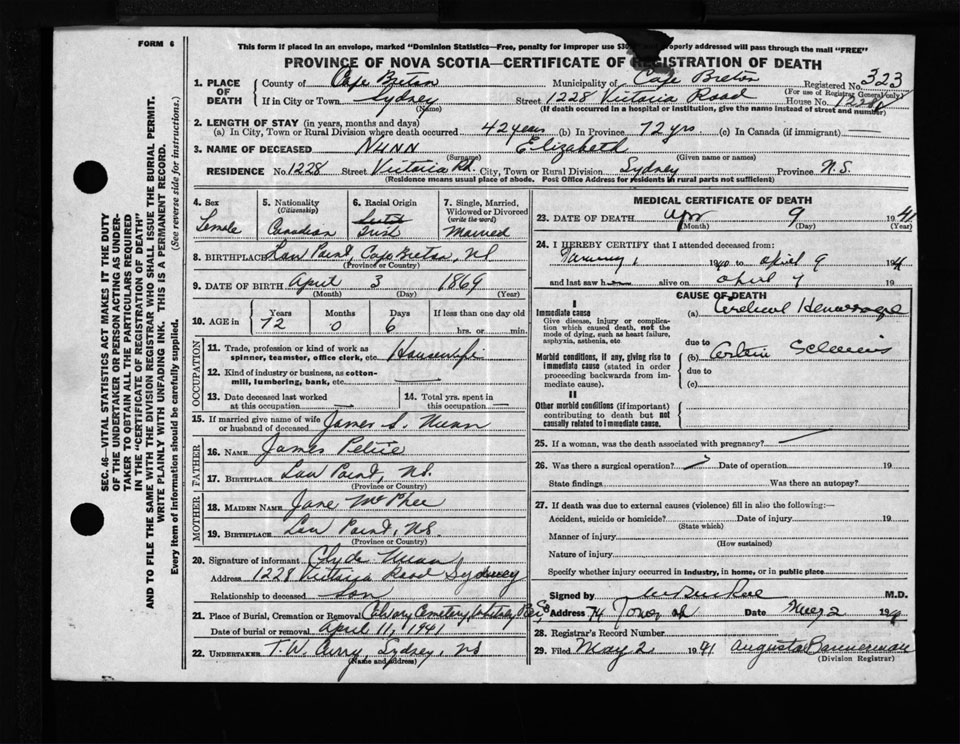 FORM 6
This form if placed in an envelope, marked "Dominion Statistics—Free, penalty for improper use $30 properly addressed will pass through the mail "FREE"
PROVINCE OF NOVA SCOTIA—CERTIFICATE OF REGISTRATION OF DEATH
SEC. 46—VITAL STATISTICS ACT MAKES IT THE DUTY
OF THE UNDERTAKER OR PERSON ACTING AS UNDER-
TAKER TO OBTAIN ALL THE PARTICULARS REQUIRED
IN THE "CERTIFICATE OF REGISTRATION OF DEATH"
AND TO FILE THE SAME WITH THE DIVISION REGISTRAR WHO SHALL ISSUE THE BURIAL PERMIT.
WRITE PLAINLY WITH UNFADING INK. THIS IS A PERMANENT RECORD.
Every item of information should be carefully supplied. (See reverse side for instructions.)
1. PLACE OF DEATH
County of Cape Breton Municipality of Cape Breton Registered No 323
(For use of Registrar General only)
If in City or Town Sydney Street 1228 Victoria Road House No. 1228
(Name) (If death occurred in a hospital or institution, give the name instead of street and number)
2. LENGTH OF STAY (in years, months and days)
(a) In City, Town or Rural Division where death occurred 42 years (b) In Province 72 yrs (c) In Canada (if immigrant)
3. NAME OF DECEASED Nunn Elizabeth
(Surname) (Given name or names)
RESIDENCE No. 1228 Street Victoria Rd. City, Town or Rural Division Sydney Province N.S.
(Residence means usual place of abode. Post Office Address for residents in rural parts not sufficient)
4. Sex Female
5. Nationality (Citizenship) Canadian
6. Racial Origin
7. Single, Married, Widowed or Divorced (write the word) Married
8. BIRTHPLACE Low Point, Cape Breton, NS
(Province or Country)
9. DATE OF BIRTH April 3 1869
(Month) (Day) (Year)
10. AGE in Years 72 Months 0 Days 6 If less than one day hrs. or min.
OCCUPATION
11. Trade, profession or kind of work as spinner, teamster, office clerk, etc. Housewife
12. Kind of industry or business, as cotton-mill, lumbering, bank, etc.
13. Date deceased last worked at this occupation
14. Total yrs. spent in this occupation
15. If married give name of wife or husband of deceased James S. Nunn
FATHER
16. NAME James Petrie
17. BIRTHPLACE Low Point, NS.
(Province or Country)
MOTHER
18. MAIDEN NAME Jane McPhee
19. BIRTHPLACE Low Point, NS.
(Province or Country)
20. Signature of informant Clyde Nunn
Address 1228 Victoria Road Sydney
Relationship to deceased son
21. Place of Burial, Cremation or Removal Calvary Cemetery, Whitney Pier
Date of burial or removal April 11, 1941
22. UNDERTAKER T. W. Curry, Sydney, NS
(Name and address)
MEDICAL CERTIFICATE OF DEATH
23. DATE OF DEATH Apr 9 1941
(Month) (Day) (Year)
24. I HEREBY CERTIFY that I attended deceased from:
1940 to April 9 1941
and last saw h alive on April 9 19
CAUSE OF DEATH
I
Immediate cause
Give disease, injury or complication which caused death, not the mode of dying, such as heart failure, asphyxia, asthenia, etc
(a) Cerebral Hemorrhage
due to
Morbid conditions, if any, giving rise to immediate cause (stated in order proceeding backwards from immediate cause).
(b)
due to
(c)
II
Other morbid conditions (if important) contributing to death but not causally related to immediate cause.
25. If a woman, was the death associated with pregnancy?
26. Was there a surgical operation? Date of operation 19
State findings Was there an autopsy?
27. If death was due to external causes (violence) fill in also the following:—
Accident, suicide or homicide? Date of injury 19
(State which)
Manner of injury
(How sustained)
Nature of injury
Specify whether injury occurred in industry, in home, or in public place
Signed by M.D.
Address Date May 2 19
28. Registrar's Record Number
29. Filed May 2 1941 Augusta Bannerman
(Division Registrar)